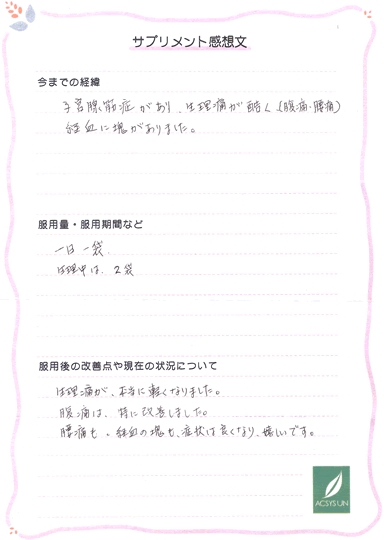 サプリメント感想文
今までの経緯
子宮腺筋症があり、生理痛が酷く、(腹痛・腰痛)
経血に塊がありました。
服用量・服用期間など
一日一袋
生理中は、2袋
服用後の改善点や現在の状況について
生理痛が、本当に軽くなりました。
腹痛は、特に改善しました。
腰痛も、経血の塊も、症状は良くなり、嬉しいです。
ACSYSUN